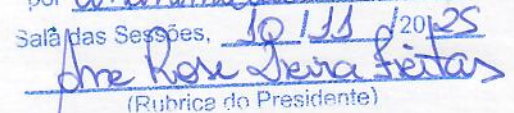 por
Sala das Sessões, 10 / 11 / 2025
Ane Rose Vieira Freitas
(Rubrica do Presidente)